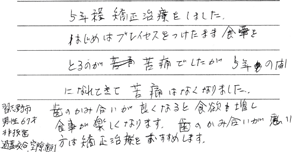 5年程 矯正治療をしました。
はじめはブレイセスをつけたまま食事を
とるのが 苦痛でしたが 5年の間
になれてきて 苦痛はなくなりました。
歯のかみ合いが良くなると食欲も増し
食事が楽しくなります。歯のかみ合いが悪い
方は矯正治療をおすすめします。
男性